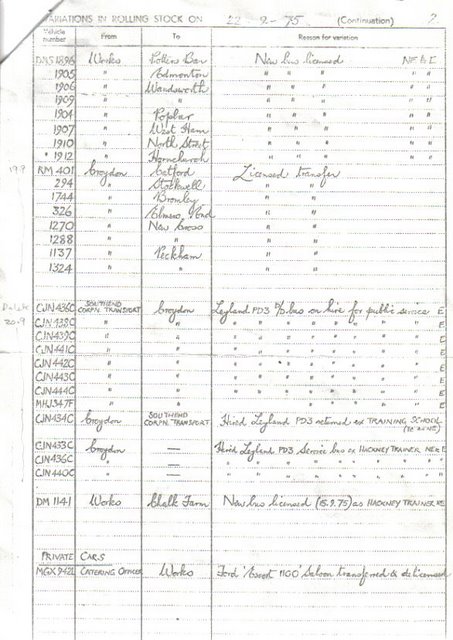 VARIATIONS IN ROLLING STOCK ON 22-9-75 (Continuation) 2
Vehicle number From To Reason for variation
DMS 1898 Works Potters Bar New bus licensed NE & E
1905 " Edmonton " " " " "
1906 " Wandsworth " " " " "
1909 " " " " " " "
1904 " Poplar " " " " "
1907 " West Ham " " " " "
1910 " North Street " " " " "
" 1912 " Hornchurch " " " " "
19.9 RM 401 Croydon Catford Licensed transfer
294 " Stockwell " "
1744 " Bromley " "
326 " Elmers End " "
1270 " New Cross " "
1288 " " " "
1137 " Peckham " "
1324 " " " "
CJN 436C SOUTHEND CORPN. TRANSPORT Croydon Leyland PD3 D/D bus on hire for public service E
20.9 CJN 438C " " " " " " " " " " E
CJN 439C " " " " " " " " " " E
CJN 441C " " " " " " " " " " E
CJN 442C " " " " " " " " " " E
CJN 443C " " " " " " " " " " E
CJN 444C " " " " " " " " " " E
MHJ 347F " " " " " " " " " " E
CJN 434C Croydon SOUTHEND CORPN. TRANSPORT Hired Leyland PD3 returned ex TRAINING SCHOOL
CJN 433C Croydon — Hired Leyland PD3 Service bus ex HACKNEY TRAINER NE & E
CJN 436C " — " " " " " " " "
CJN 440C " — " " " " " " " "
DM 1141 Works Chalk Farm New bus licensed (15.9.75) as HACKNEY TRAINER NE
PRIVATE CARS
MGX 942L CATERING OFFICER Works Ford 'Escort 1100' Saloon transferred & delicensed